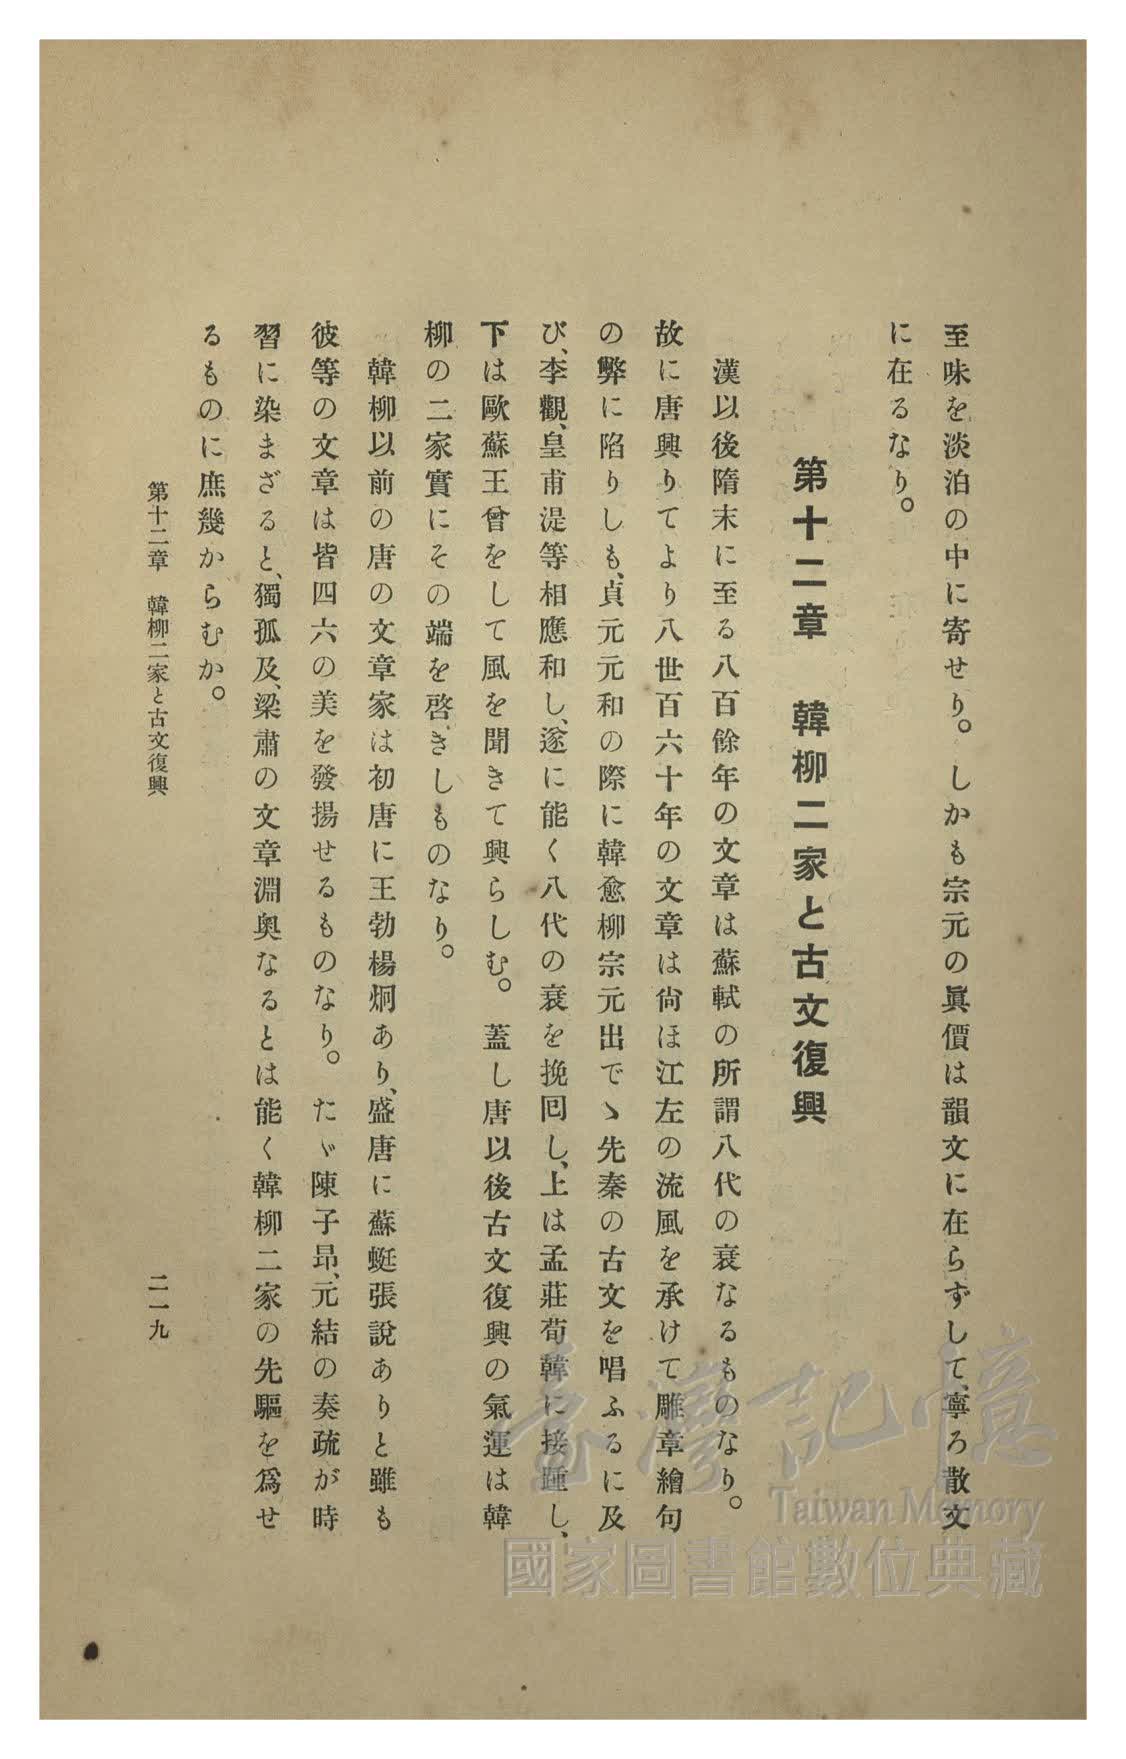 至味を淡泊の中に寄せり。しかも宗元の眞價は韻文に在らずして、寧ろ散文
に在るなり。
第十二章　韓柳二家と古文復興
漢以後隋末に至る八百餘年の文章は蘇軾の所謂八代の衰なるものなり。
故に唐興りてより八世百六十年の文章は尙ほ江左の流風を承けて雕章繪句
の弊に陷りしも、貞元元和の際に韓愈柳宗元出でゝ先秦の古文を唱ふるに及
び、李觀、皇甫湜等相應和し、遂に能く八代の衰を挽囘し、上は孟莊荀韓に接踵し、
下は歐蘇王曾をして風を聞きて興らしむ。蓋し唐以後古文復興の氣運は韓
柳の二家實にその端を啓きしものなり。
韓柳以前の唐の文章家は初唐に王勃楊炯あり、盛唐に蘇蜓張說ありと雖も
彼等の文章は皆四六の美を發揚せるものなり。たゞ陳子昻、元結の奏疏が時
習に染まざると、獨孤及、梁肅の文章淵奧なるとは能く韓柳二家の先驅を爲せ
るものに庶幾からむか。
第十二章　韓柳二家と古文復興
二一九
臺灣記憶
Taiwan Memory
國家圖書館數位典藏